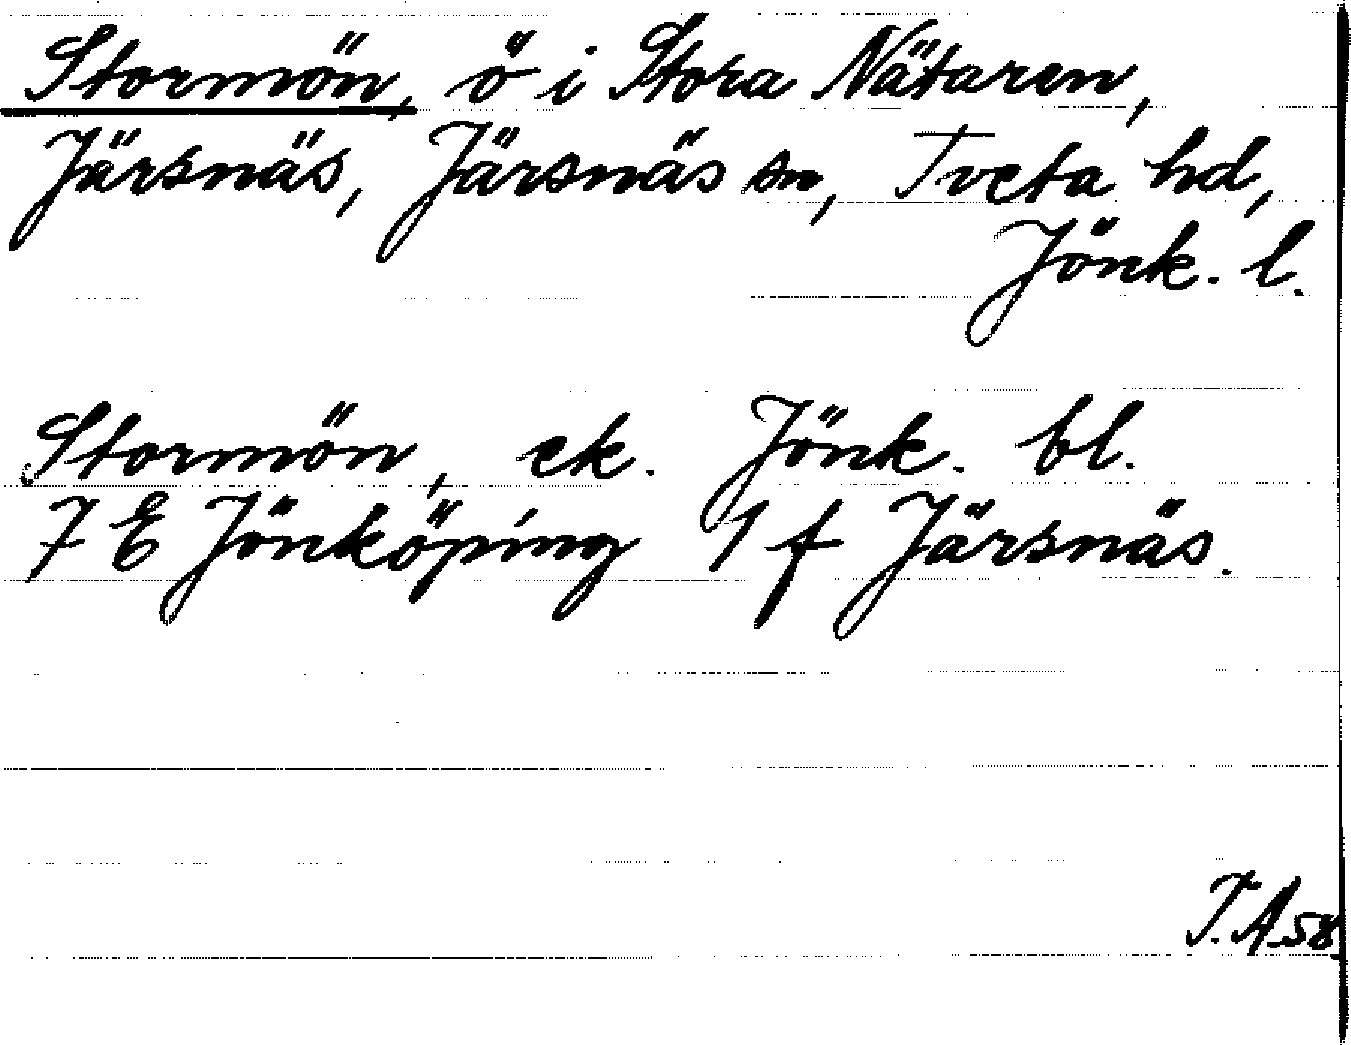 Stormön, ö i Stora Nätaren,
Järsnäs, Järsnäs sn, Tveta hd,
Jönk. l.
Stormön, ek. Jönk. bl.
7 E Jönköping 1 f Järsnäs.
T. A 58